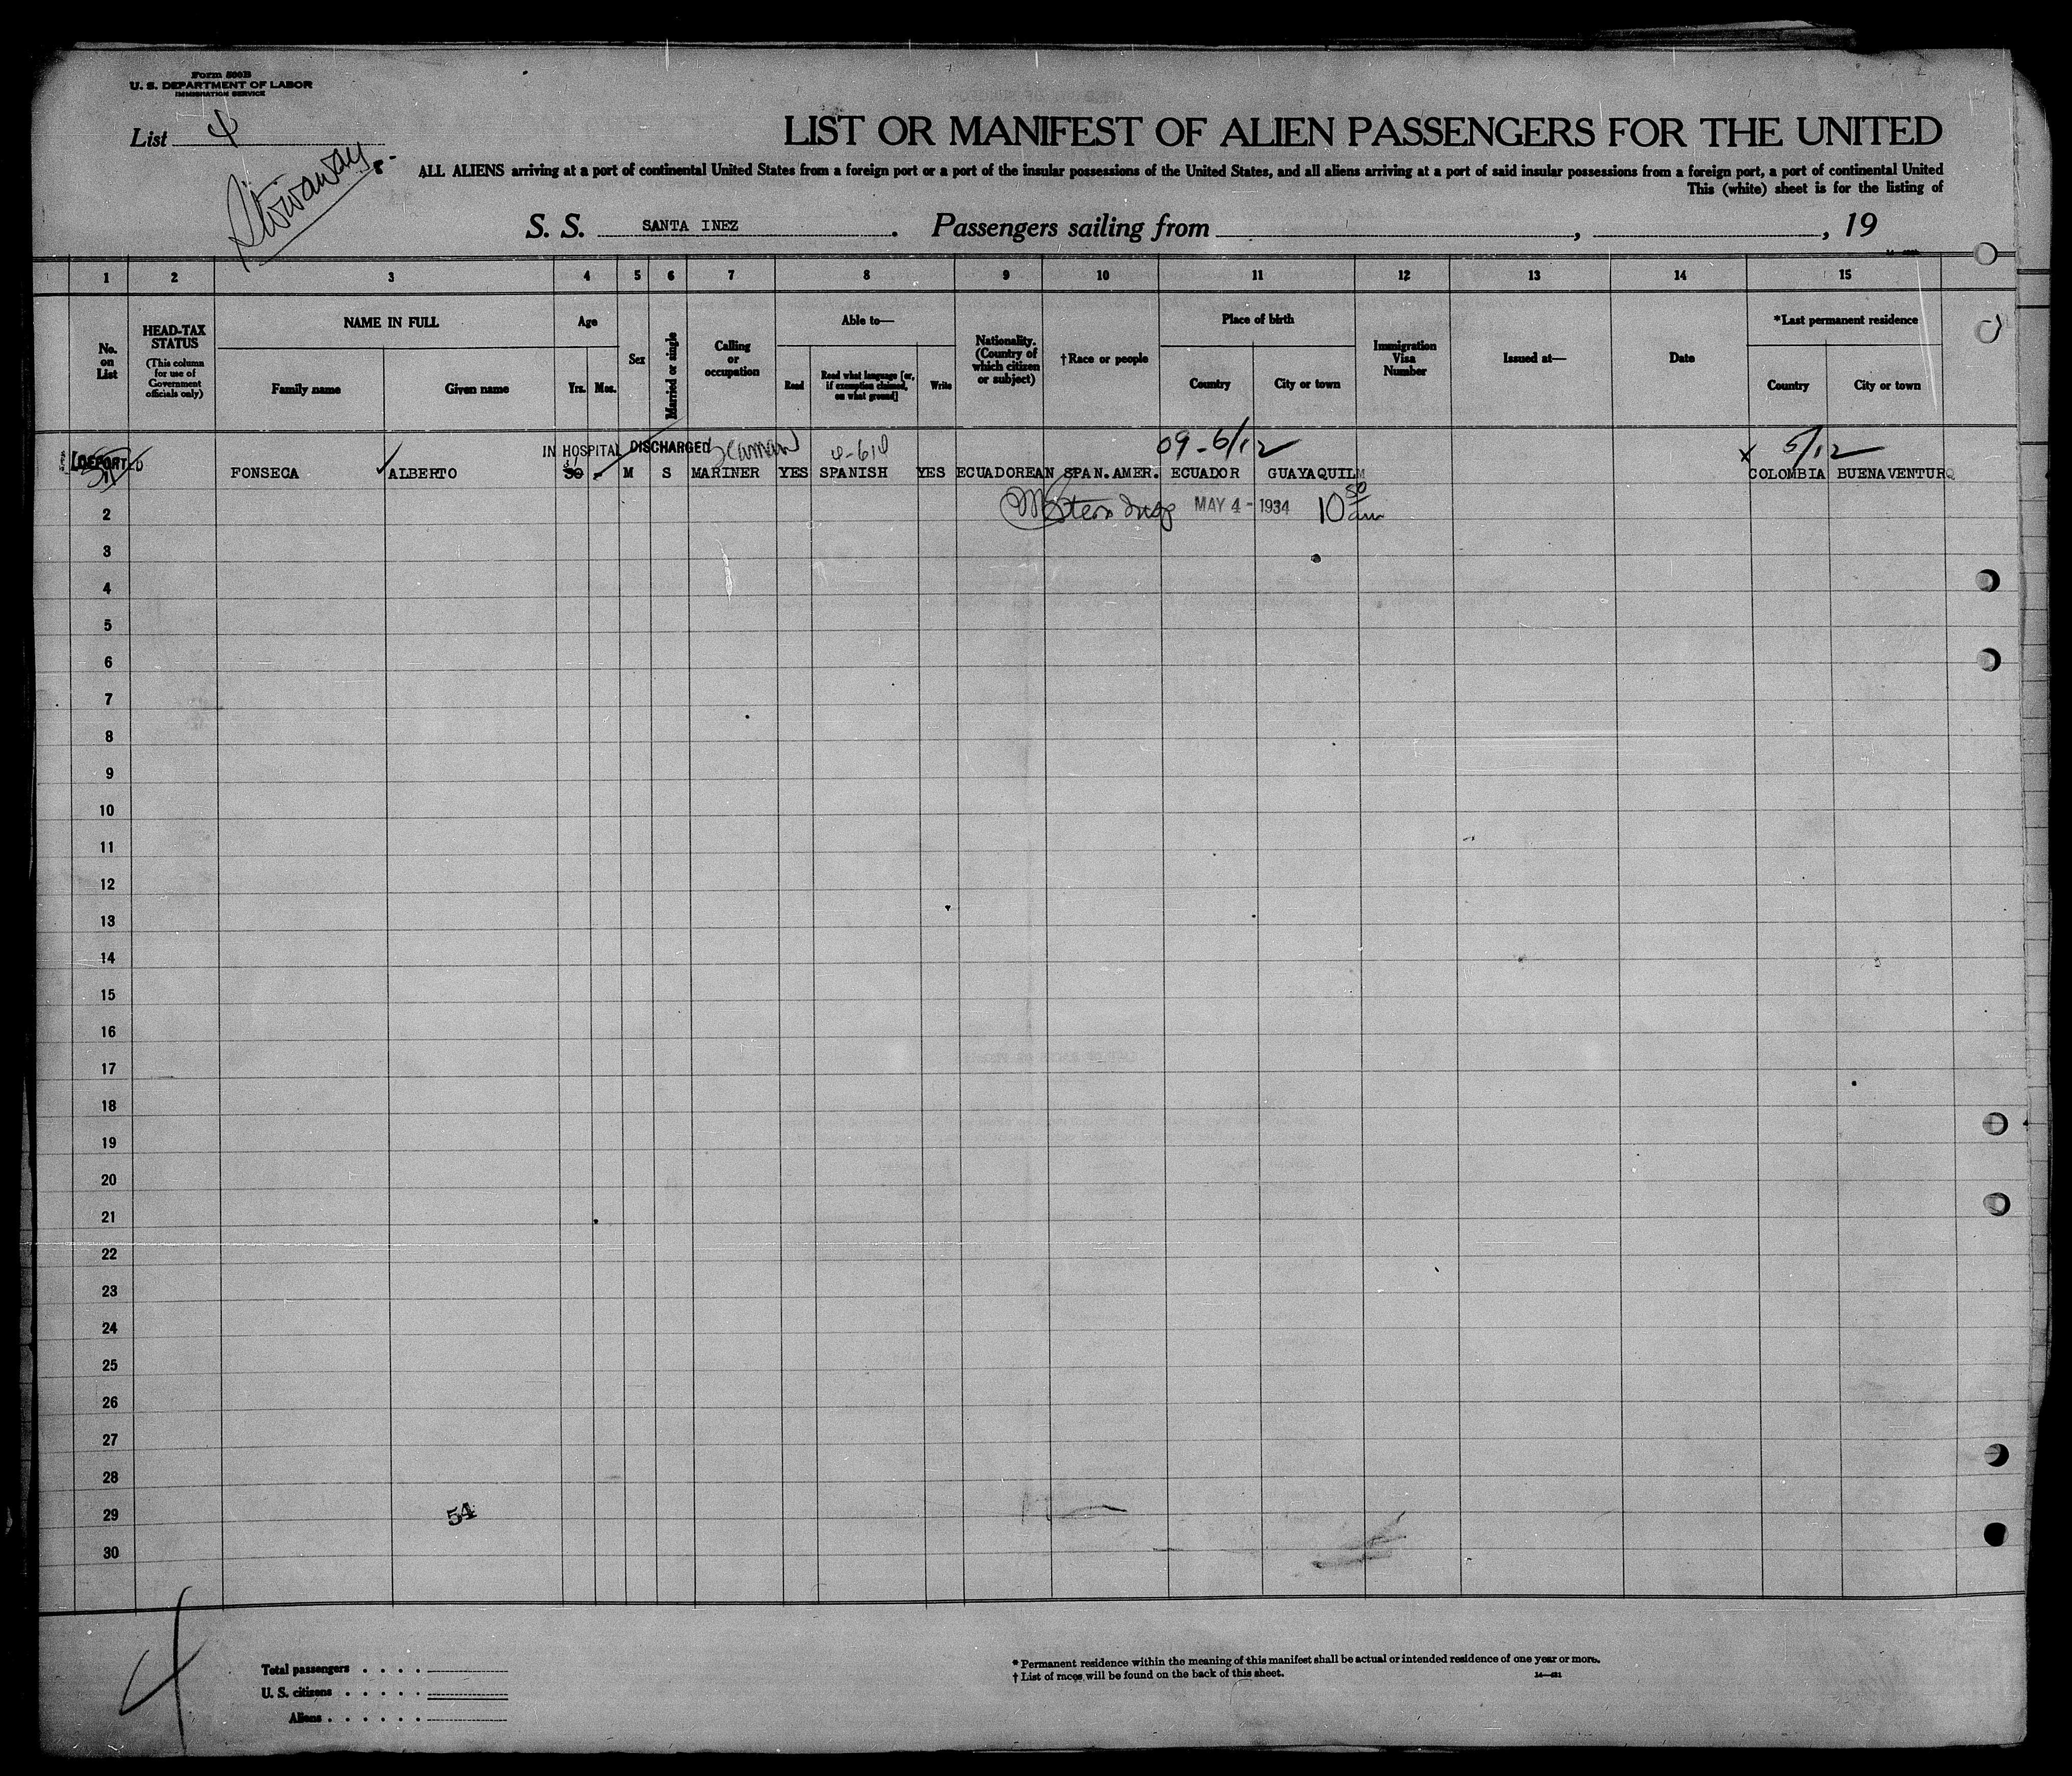 Form 500B
U. S. DEPARTMENT OF LABOR
IMMIGRATION SERVICE
List 4
Stowaway
LIST OR MANIFEST OF ALIEN PASSENGERS FOR THE UNITED
ALL ALIENS arriving at a port of continental United States from a foreign port or a port of the insular possessions of the United States, and all aliens arriving at a port of said insular possessions from a foreign port, a port of continental United
This (white) sheet is for the listing of
S. S. SANTA INEZ. Passengers sailing from , , 19
1 2 3 4 5 6 7 8 9 10 11 12 13 14 15
No. on List
HEAD-TAX STATUS
(This column for use of Government officials only)
NAME IN FULL
Family name
Given name
Age
Yrs. Mos.
Sex
Married or single
Calling or occupation
Able to—
Read
Read what language [or, if exemption claimed, on what ground]
Write
Nationality. (Country of which citizen or subject)
†Race or people
Place of birth
Country
City or town
Immigration Visa Number
Issued at—
Date
*Last permanent residence
Country
City or town
IN HOSPITAL DISCHARGED Seaman 4-610 09-6/12 x 5/12
DEPORTED FONSECA ALBERTO 30 M S MARINER YES SPANISH YES ECUADOREAN SPAN.AMER. ECUADOR GUAYAQUIL COLOMBIA BUENAVENTUR
2 MAY 4 - 1934 10 50 am
3
4
5
6
7
8
9
10
11
12
13
14
15
16
17
18
19
20
21
22
23
24
25
26
27
28
29 54
30
4
Total passengers . . . .
U. S. citizens . . . . .
Aliens . . . . . .
* Permanent residence within the meaning of this manifest shall be actual or intended residence of one year or more.
† List of races will be found on the back of this sheet.